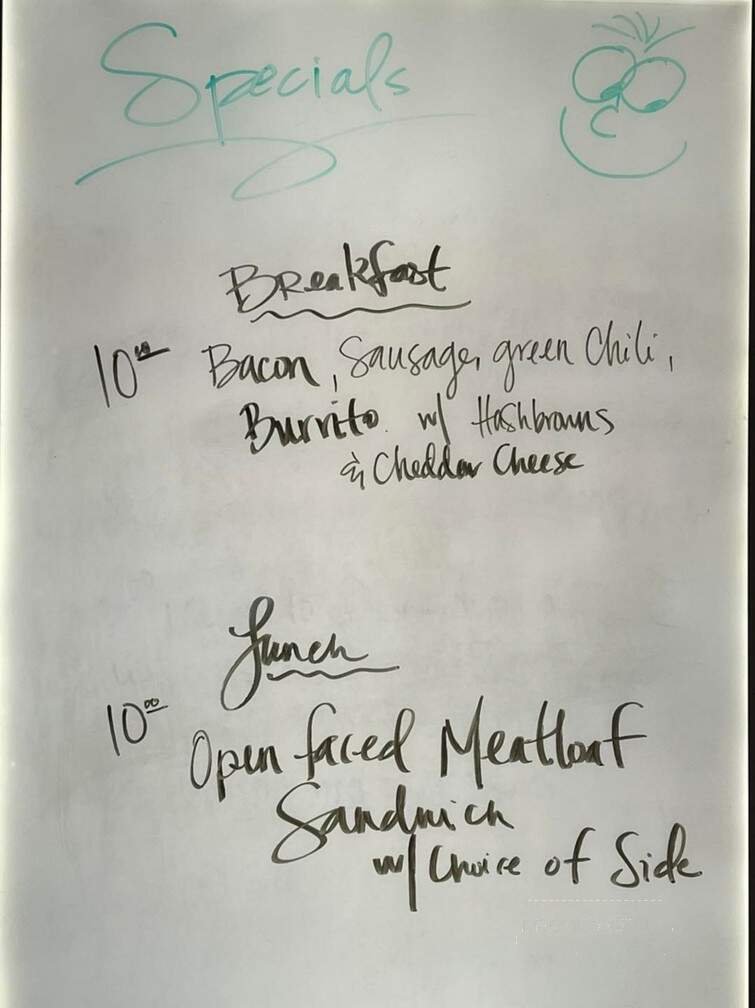 Specials
Breakfast
10⁰⁰ Bacon, Sausage, green Chili,
Burrito w/ Hashbrowns
& Cheddar Cheese
Lunch
10⁰⁰ Open faced Meatloaf
Sandwich
w/ Choice of Side